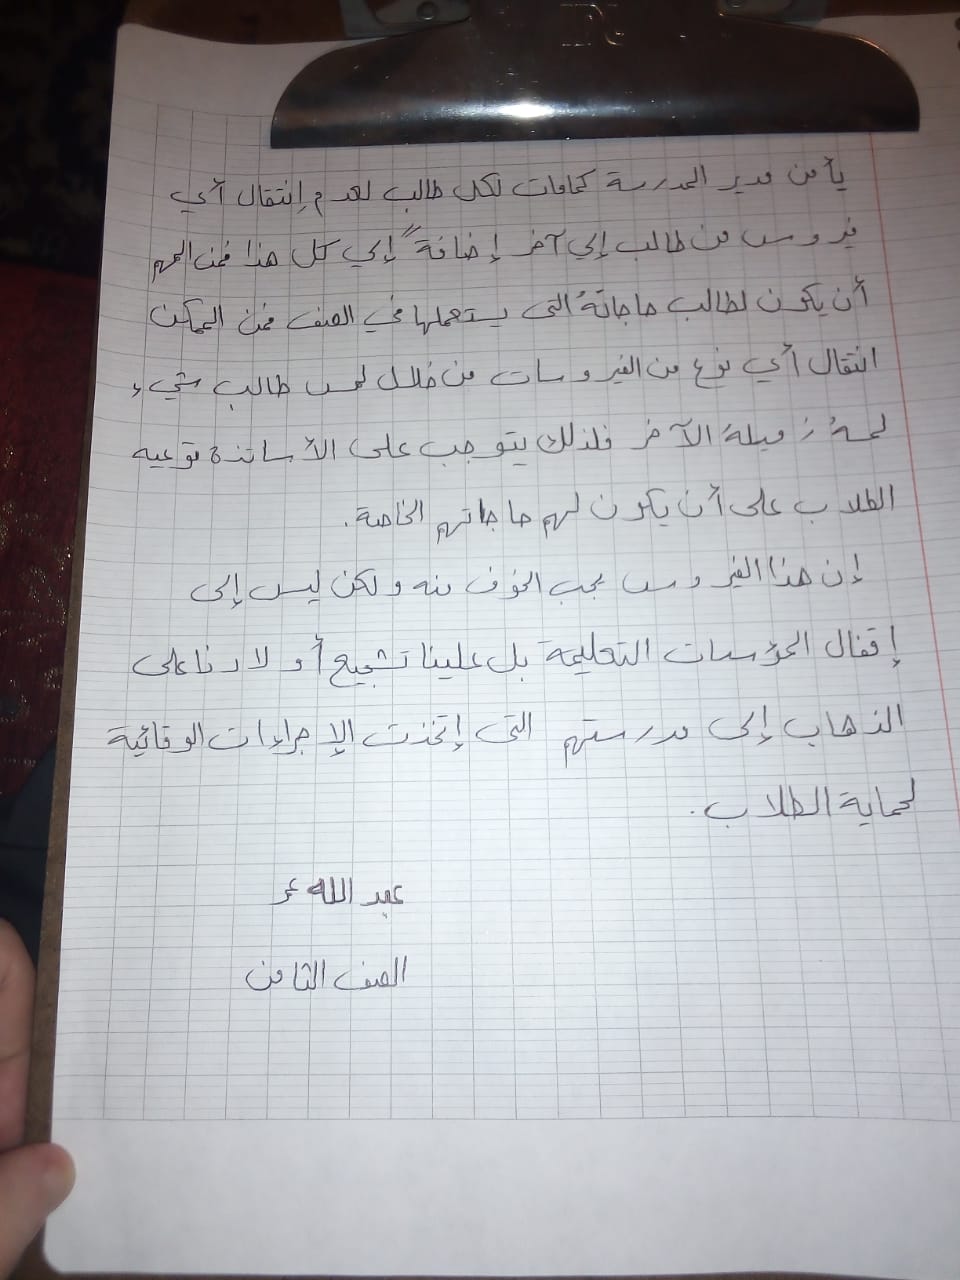 يأمن مدير المدرسة كمامات لكل طالب لعدم إنتقال أي
فيروس من طالب إلى آخر إضافةً إلي كل هذا فمن المهم
أن يكون لطالب حاجاتهُ التي يستعملها في الصف فمن الممكن
انتقال أي نوع من الفيروسات من خلال لمس طالب شيء
لمسهُ زميلهُ الآخر فلذلك يتوجب على الأساتذة توعيه
الطلاب على أن يكون لهم حاجاتهم الخاصة.
إن هذا الفيروس يجب الخوف منه ولكن ليس إلى
إقفال المؤسسات التعليمية بل علينا تشجيع أولادنا على
الذهاب إلى مدرستهم التي إتخذت الإجراءات الوقائية
لحماية الطلاب.
عبد الله عمر
الصف الثامن